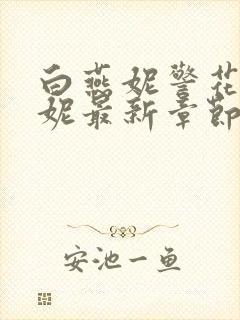 白燕妮警花
妮最新章节
安池一鱼